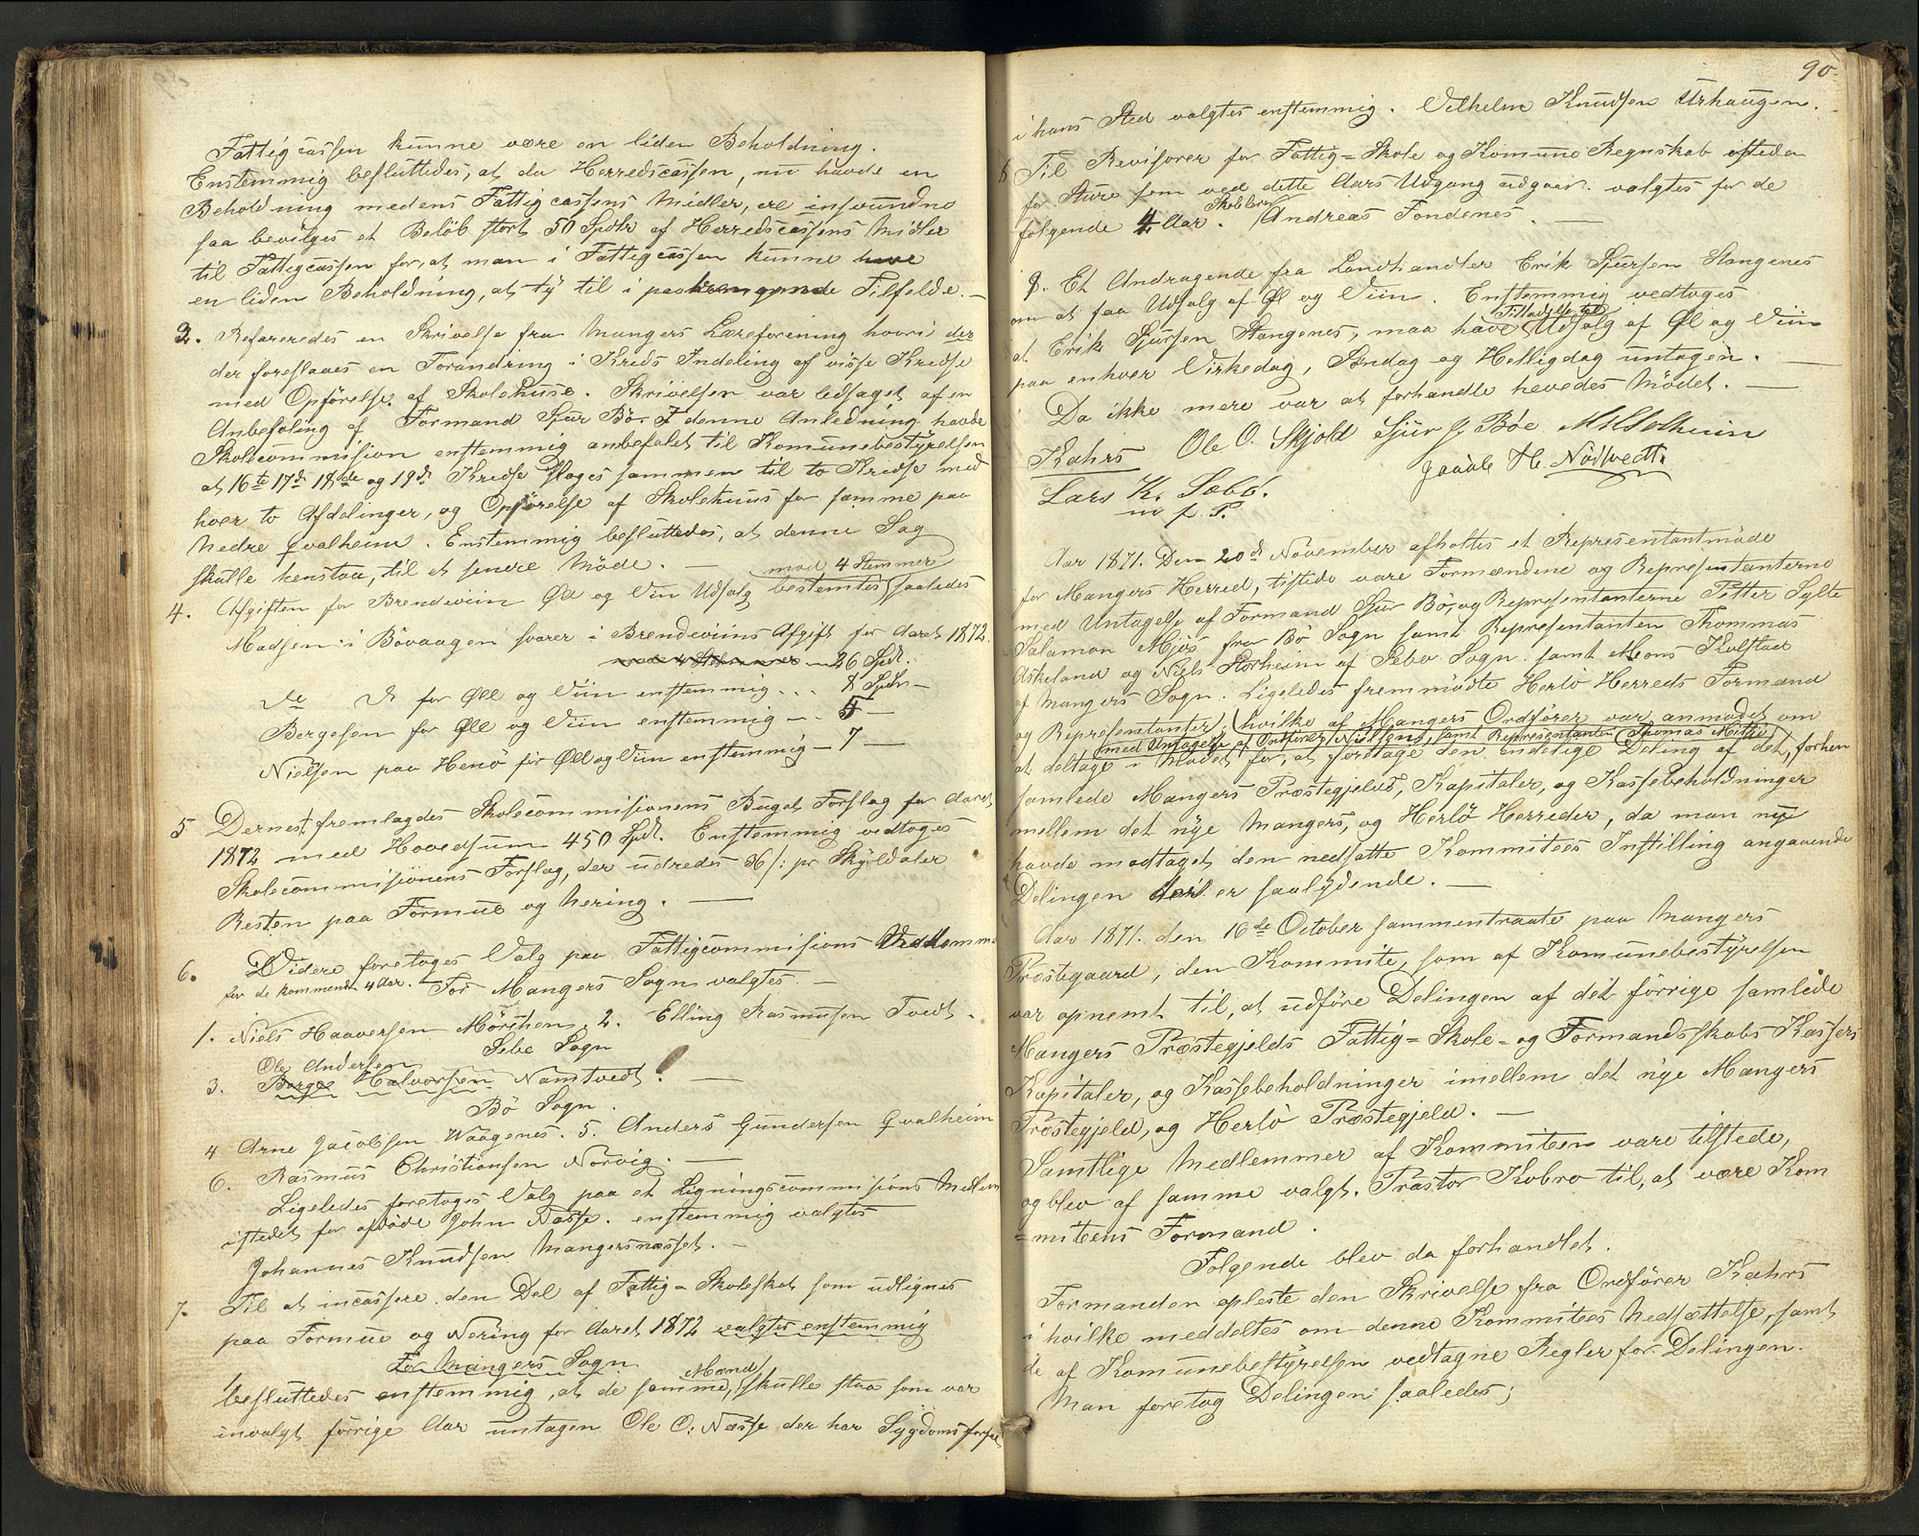 Fattigcassen kunne være en liden Beholdning.
Enstemmig besluttedes, at da Herredscassen, nu havde en
Beholdning medens Fattigcassens Midler, ere
saa bevilges et Beløb stort 50 Spdlr af Herredscassens Midler
til Fattigcassen for, at man i Fattigcassen kunne have
en liden Beholdning, at ty til i paakrempende Tilfelde. —
3. Refereredes en Skrivelse fra Mangers Læreforening hvori der
der foreslaaes en Forandring i Kreds Indeling af visse Kredse
med Opførelse af Skolehuse. Skrivelsen var ledsaget af en
Anbefaling af Formand Sjur Bö. I denne Anledning havde
Skolecommision enstemmig anbefalet til Komunebestyrelsen
at 16te 17de 18de og 19de Kredse slages sammen til to Kredse med
hver to Afdelinger, og Opførelse af Skolehuus for samme paa
Nedre Qvalheim. Enstemmig besluttedes, at denne Sag
skulle henstaa, til et senere Møde. —
med 4 Stemmer
4. Afgiften for Brendeviin Øll og Viin Udsalg bestemtes saaledes
Madsen i Bövaagen svarer i Brendeviins Afgift for Aaret 1872.
med 4 Stemmer — 26 Spdl.
do do for Øll og Viin enstemmig . . . 8 Spdr —
Bergesen for Øll og Viin enstemmig — . 5 —
Nielsen paa Henö for Øll og Viin enstemmig — 7 —
5 Dernest fremlagdes Skolecommisionens Buget Forslag for Aaret
1872 med Hovedsum 450 Spdl. Enstemmig vedtoges
Skolecommisionens Forslag, der udredes pr Skylddaler
Resten paa Formue og Nering. —
6. Videre foretoges Valg paa Fattigcommisions Medlemme
for de kommende 4 Aar. For Mangers Sogn valgtes —
1. Niels Haaversen Mörchen, 2. Elling Rasmusen Tvedt.
Sebe Sogn
Ole Andersen
3. Börge Halvorsen Namtvedt. —
Bö Sogn.
4 Arne Jacobsen Waagenes. 5. Anders Gundersen Qvalheim
6. Rasmus Christiansen Norvig. —
Ligeledes foretoges Valg paa et Ligningscommisions Medlem
istedet for afdöde John Næsse. enstemmig valgtes
Johannes Knudsen Mangersnæsset. —
7. Til at incassere den Del af Fattig = Skoleskat som udlignes
paa Formue og Nering for Aaret 1872 valgtes enstemmig
For Mangers Sogn
Mænd
besluttedes enstemmig, at de samme, skulle staa som var
invalgt forrige Aar untagen Ole O: Næsse der har Sygdomsforfal
90.
i hans Sted valgtes enstemmig. Vilhelm Knudsen Urhaugen.
8 Til Revisorer for Fattig = Skole og Komune Regnskab istedenfor
for Sture som ved dette Aars Udgang udgaar. valgtes for de
følgende 4 Aar. Andreas Fondenes. —
9. Et Andragende fra Landhandler Erik Sjursen Stangenes
om at faa Udsalg af Øl og Viin. Enstemmig vedtoges
Tilladelse til
at Erik Sjursen Stangenes, maa have Udsalg af Øl og Viin
paa enhver Virkedag, Søndag og Helligdag untagen. —
Da ikke mere var at forhandle hevedes Mødet. —
Kahrs Ole O. Skjold Sjur J. Böe
Jacob H. Nödtvedt.
Lars K. Sæbö.
m f. P.
Aar 1871. Den 20de November afholtes et Representantmøde
for Mangers Herred, tilstede vare Formændene og Representanterne
med Untagelse af Formand Sjur Bö, og Representanterne Petter Sylte
Salamon Mjös fra Bö Sogn samt Representanten Thommas
Askeland og Niels Storheim af Sebø Sogn. samt Mons Kolstad
af Mangers Sogn. Ligeledes fremmødte Herlö Herreds Formænd
og Representanter, hvilke af Mangers Ordfører var anmodet om
med Untagelse af Ordfører Nielsens, samt Representanten Thomas Miltje
at deltage i Mødet for, at foretage den endelige Deling af det, forhen
samlede Mangers Præstegjelds, Kapitaler, og Kassebeholdninger
mellem det nye Mangers, og Herlö Herreder, da man nu
havde modtaget den nedsatte Kommitees Instilling angaaende
Delingen der er saalydende. —
Aar 1871. den 16de October sammentraate paa Mangers
Præstegaard, den Kommite, som af Komunebestyrelsen
var opnemt til, at udføre Delingen af det forrige samlede
Mangers Præstegjelds Fattig = Skole = og Formandsskabs Kassers
Kapitaler, og Kassebeholdninger imellem det nye Mangers
Præstegjeld, og Herlö Præstegjeld. —
Samtlige Medlemmer af Kommiteen vare tilstede,
og blev af samme valgt. Præstor Kobro til, at være Kom
=miteens Formand.
Følgende blev da forhandlet.
Formanden opleste den Skrivelse fra Ordfører Kahrs
i hvilke meddeltes om denne Kommitees Nedsættelse, samt
de af Komunebestyrelsen vedtagne Regler for Delingen.
Man foretog Delingen saaledes;